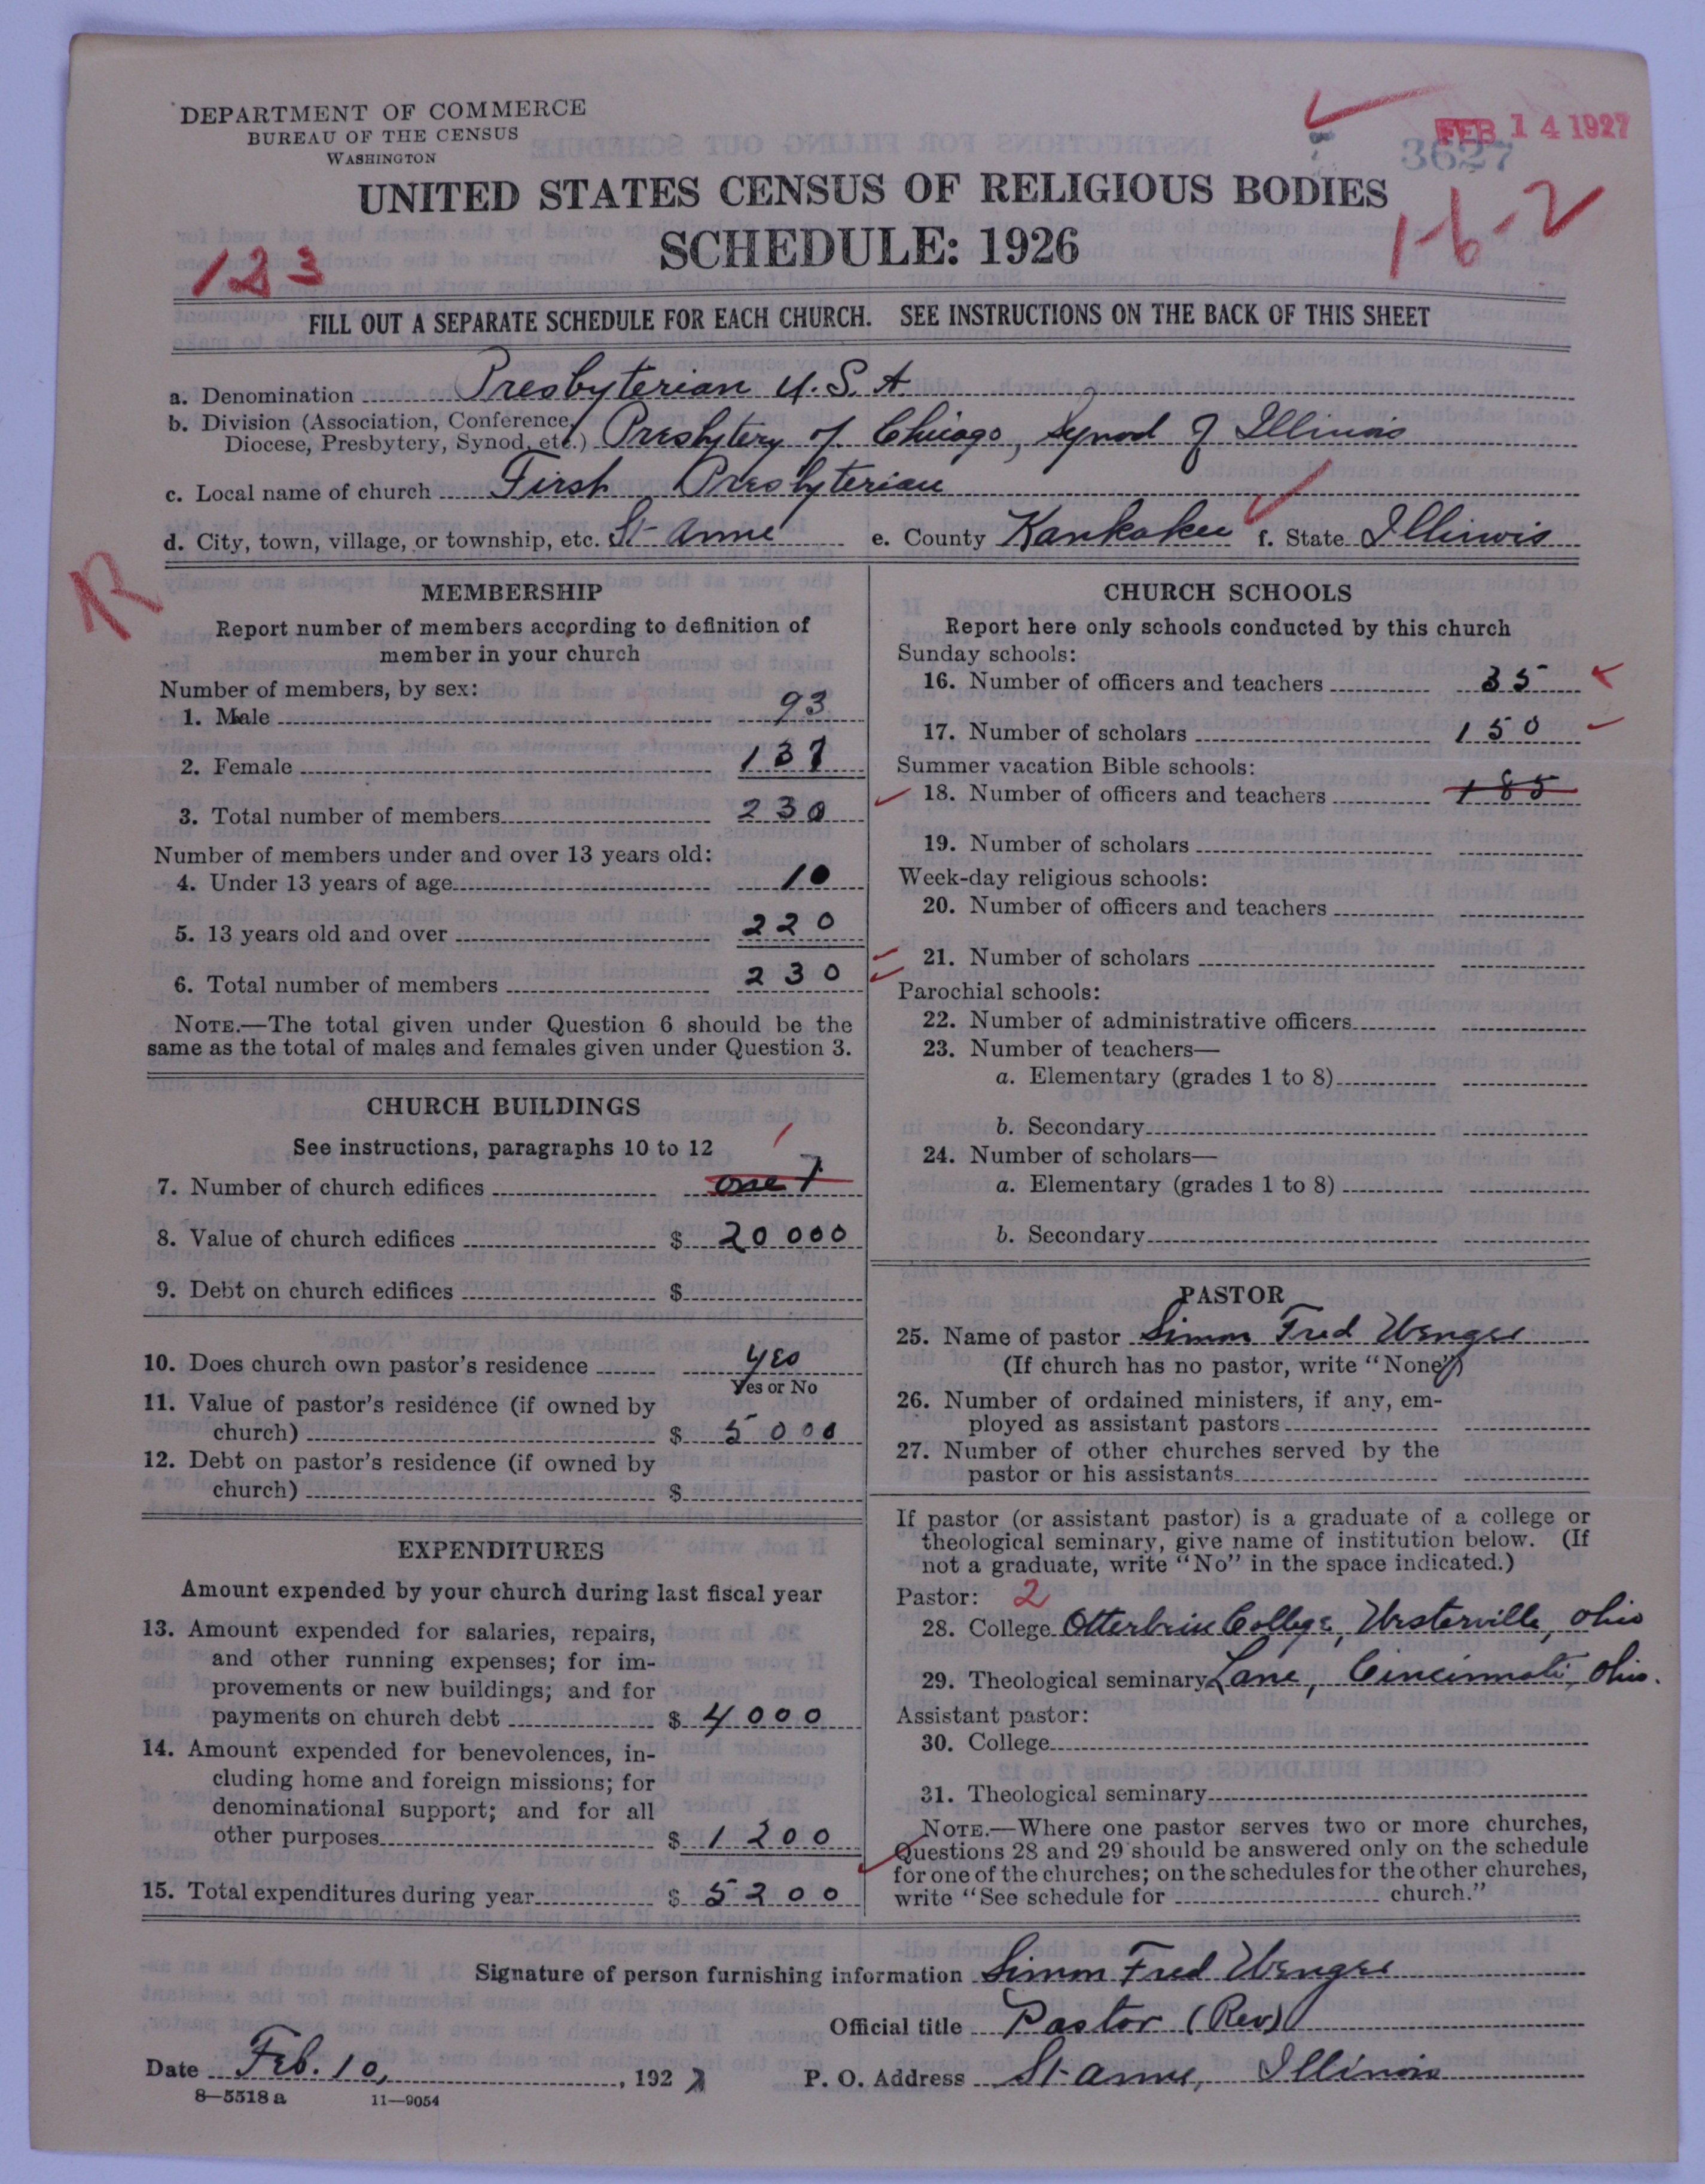 DEPARTMENT OF COMMERCE
BUREAU OF THE CENSUS
WASHINGTON
FEB 14 1927
3627
UNITED STATES CENSUS OF RELIGIOUS BODIES
1-6-2
SCHEDULE: 1926
123
FILL OUT A SEPARATE SCHEDULE FOR EACH CHURCH. SEE INSTRUCTIONS ON THE BACK OF THIS SHEET
a. Denomination Presbyterian U.S.A.
b. Division (Association, Conference,
Diocese, Presbytery, Synod, etc.) Presbytery of Chicago, Synod of Illinois
c. Local name of church First Presbyterian
d. City, town, village, or township, etc. St Anne e. County Kankakee f. State Illinois
R
MEMBERSHIP
Report number of members according to definition of
member in your church
Number of members, by sex:
1. Male 93
2. Female 137
3. Total number of members 230
Number of members under and over 13 years old:
4. Under 13 years of age 10
5. 13 years old and over 220
6. Total number of members 230
NOTE.—The total given under Question 6 should be the
same as the total of males and females given under Question 3.
CHURCH BUILDINGS
See instructions, paragraphs 10 to 12
7. Number of church edifices one 1
8. Value of church edifices $ 20 000
9. Debt on church edifices $
10. Does church own pastor's residence yes
Yes or No
11. Value of pastor's residence (if owned by
church) $ 5000
12. Debt on pastor's residence (if owned by
church) $
EXPENDITURES
Amount expended by your church during last fiscal year
13. Amount expended for salaries, repairs,
and other running expenses; for im-
provements or new buildings; and for
payments on church debt $ 4000
14. Amount expended for benevolences, in-
cluding home and foreign missions; for
denominational support; and for all
other purposes $ 1200
15. Total expenditures during year $ 5200
CHURCH SCHOOLS
Report here only schools conducted by this church
Sunday schools:
16. Number of officers and teachers 35
17. Number of scholars 150
Summer vacation Bible schools:
18. Number of officers and teachers 185
19. Number of scholars
Week-day religious schools:
20. Number of officers and teachers
21. Number of scholars
Parochial schools:
22. Number of administrative officers
23. Number of teachers—
a. Elementary (grades 1 to 8)
b. Secondary
24. Number of scholars—
a. Elementary (grades 1 to 8)
b. Secondary
PASTOR
25. Name of pastor Simon Fred Wenger
(If church has no pastor, write "None")
26. Number of ordained ministers, if any, em-
ployed as assistant pastors
27. Number of other churches served by the
pastor or his assistants
If pastor (or assistant pastor) is a graduate of a college or
theological seminary, give name of institution below. (If
not a graduate, write "No" in the space indicated.)
Pastor: 2
28. College Otterbein College, Westerville, Ohio
29. Theological seminary Lane, Cincinnati, Ohio.
Assistant pastor:
30. College
31. Theological seminary
NOTE.—Where one pastor serves two or more churches,
Questions 28 and 29 should be answered only on the schedule
for one of the churches; on the schedules for the other churches,
write "See schedule for church."
Signature of person furnishing information Simon Fred Wenger
Official title Pastor (Rev)
Date Feb. 10, 1927 P. O. Address St Anne, Illinois
8—5518 a 11—9054